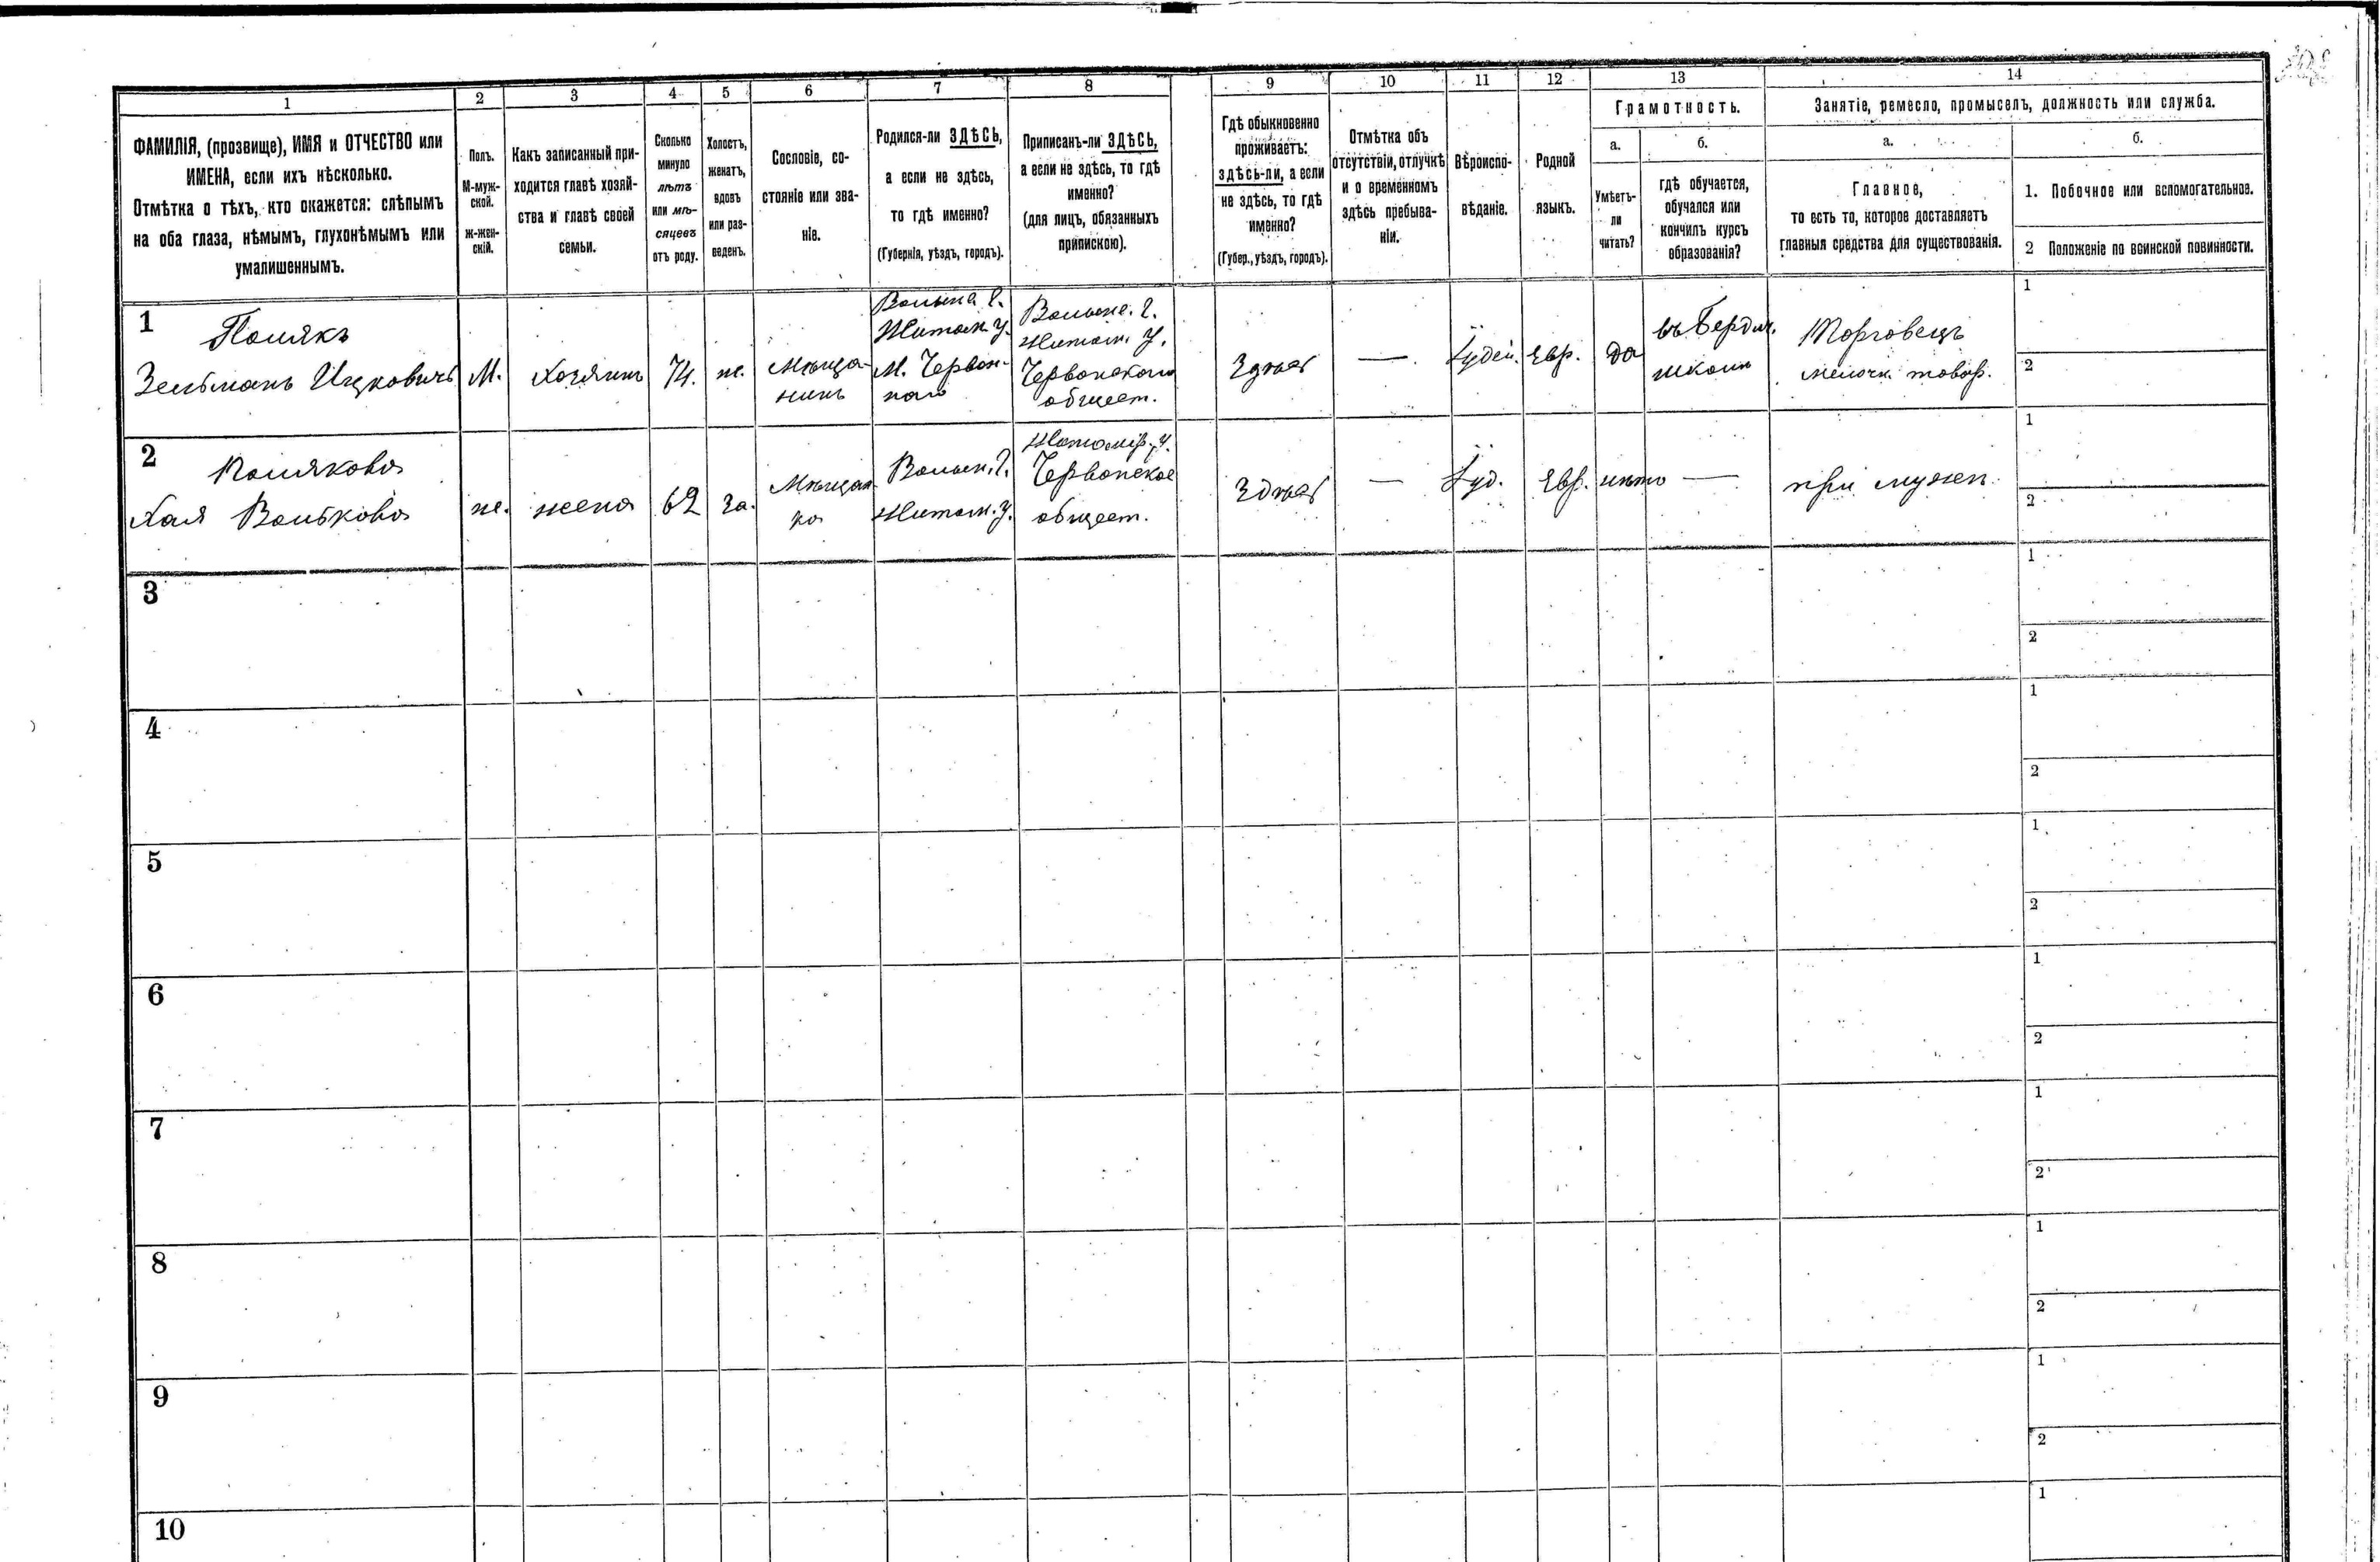 1 2 3 4 5 6 7 8 9 10 11 12 13 14
ФАМИЛІЯ, (прозвище), ИМЯ и ОТЧЕСТВО или
ИМЕНА, если ихъ нѣсколько.
Отмѣтка о тѣхъ, кто окажется: слѣпымъ
на оба глаза, нѣмымъ, глухонѣмымъ или
умалишеннымъ.
Полъ.
М-муж-
ской.
ж-жен-
скій.
Какъ записанный при-
ходится главѣ хозяй-
ства и главѣ своей
семьи.
Сколько
минуло
лѣтъ
или мѣ-
сяцевъ
отъ роду.
Холостъ,
женатъ,
вдовъ
или раз-
веденъ.
Сословіе, со-
стояніе или зва-
ніе.
Родился-ли ЗДѢСЬ,
а если не здѣсь,
то гдѣ именно?
(Губернія, уѣздъ, городъ).
Приписанъ-ли ЗДѢСЬ,
а если не здѣсь, то гдѣ
именно?
(для лицъ, обязанныхъ
припискою).
Гдѣ обыкновенно
проживаетъ:
здѣсь-ли, а если
не здѣсь, то гдѣ
именно?
(Губер., уѣздъ, городъ).
Отмѣтка объ
отсутствіи, отлучкѣ
и о временномъ
здѣсь пребыва-
ніи.
Вѣроиспо-
вѣданіе.
Родной
языкъ.
Грамотность.
а.
Умѣетъ-
ли
читать?
б.
гдѣ обучается,
обучался или
кончилъ курсъ
образованія?
Занятіе, ремесло, промыселъ, должность или служба.
а.
Главное,
то есть то, которое доставляетъ
главныя средства для существованія.
б.
1. Побочное или вспомогательное.
2 Положеніе по воинской повинности.
1
Полякъ
Зельманъ Ицковичъ
М.
Хозяинъ
74.
ж.
Мѣща-
нинъ
Волынс. г.
Житом. у.
М. Червон-
наго
Волынс. г.
Житом. у.
Червонскаго
общест.
Здѣсь
—
Іудей.
Евр.
да
въ Бердич.
школѣ
Торговецъ
мелочн. товар.
1
2
2
Полякова
Хая Волькова
ж.
жена
62
за.
Мѣщан-
ка
Волын. г.
Житом. у.
Житомір. у.
Червонское
общест.
Здѣсь
—
Іуд.
Евр.
нѣтъ
—
при мужѣ
1
2
3
1
2
4
1
2
5
1
2
6
1
2
7
1
2
8
1
2
9
1
2
10
1